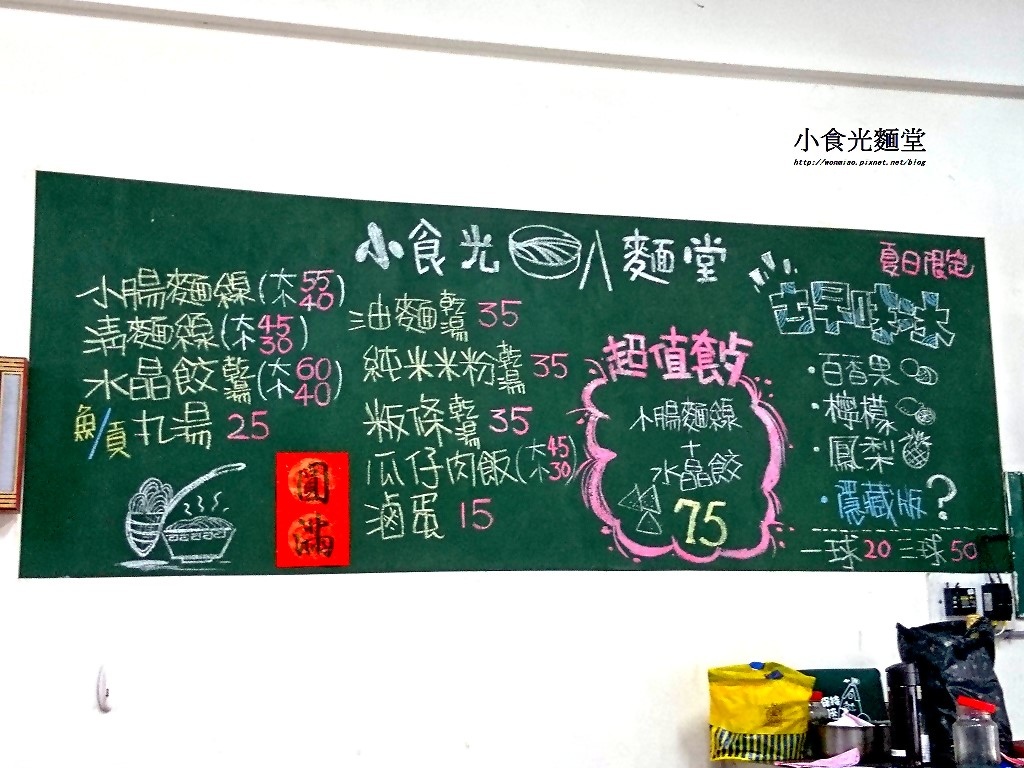 小食光麵堂
http://wonmiao.pixnet.net/blog
小食光 麵堂
小腸麵線(大55 小40)
清麵線(大45 小30)
水晶餃乾湯(大60 小40)
魚/貢丸湯 25
圓滿
油麵乾湯 35
純米米粉乾湯 35
粄條乾湯 35
瓜仔肉飯(大45 小30)
滷蛋 15
超值套餐
小腸麵線
+
水晶餃
75
夏日限定
古早味冰
·百香果
·檸檬
·鳳梨
·隱藏版?
一球20 三球50